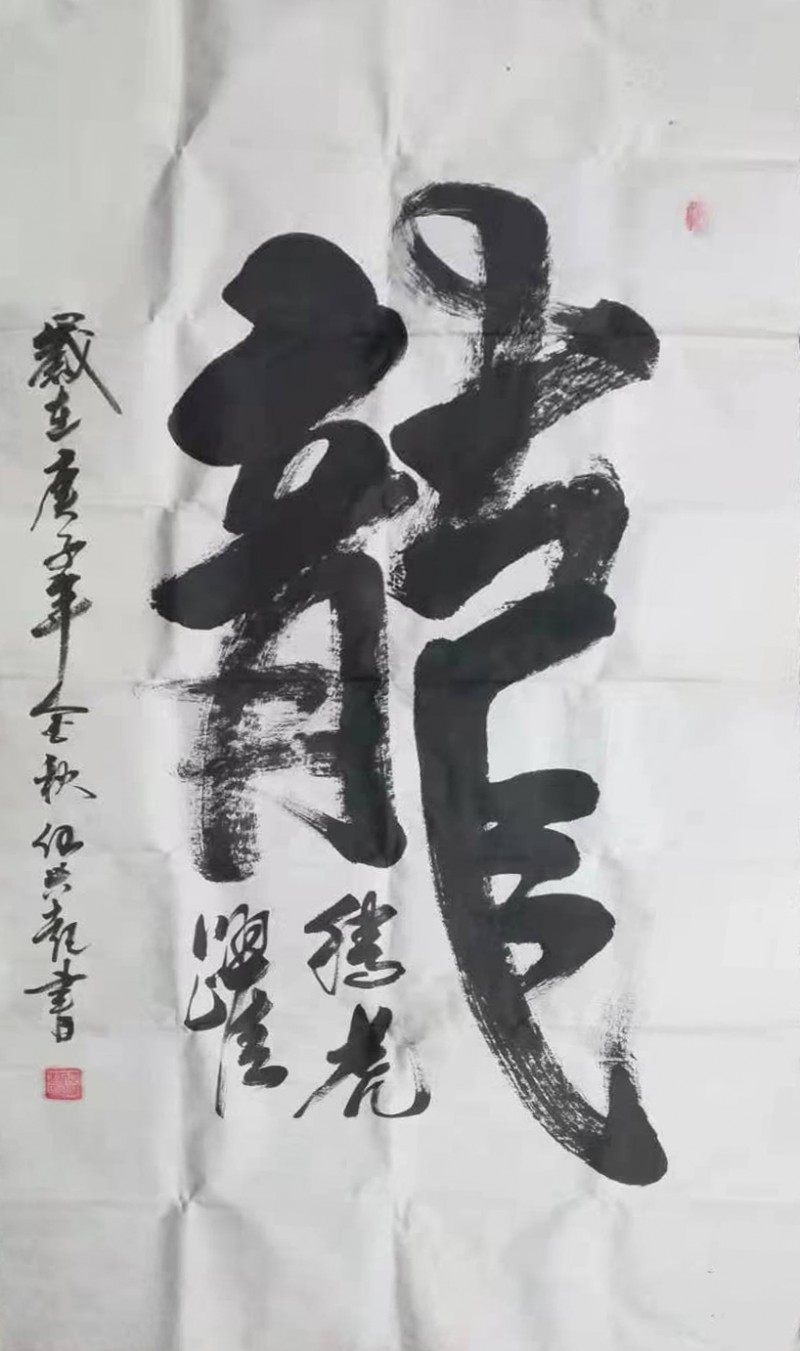 龍
騰虎
躍
歲在庚子年金秋任興乾書